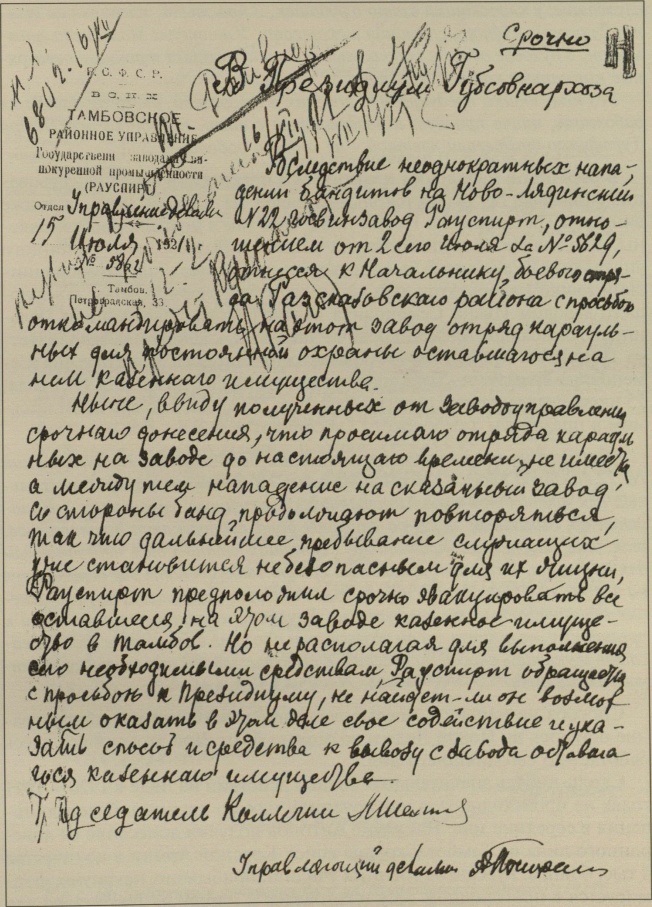 Срочно
Н
6802. 16/VII
В Президиум Губсовнархоза
Р. С. Ф. С. Р.
В С Н Х
ТАМБОВСКОЕ
РАЙОННОЕ УПРАВЛЕНИЕ
Государствени заводами ви-
нокуренной промышленности
(РАУСПИРТ)
Отдел Управление делами
15 Июля 1921 г.
№ 5862
г. Тамбов.
Петроградская, 33.
Вследствие неоднократных напа-
дений бандитов на Ново-Лядинский
№22 госвинзавод Рауспирт, отно-
шением от 2 сего Июля за № 5629,
отнесся к Начальнику боевого отря-
да Рассказовскаго района с просьбою
откомандировать на этот завод отряд карауль-
ных для постоянной охраны оставшагося на
нем казеннаго имущества.
Ныне, ввиду полученных от Заводоуправления
срочнаго донесения, что просимаго отряда карауль
ных на заводе до настоящаго времени не имеется
а между тем нападение на сказанный завод
со стороны банд продолжают повторяться,
так что дальнейшее пребывание служащих
уже становится небезопасным для их жизни,
Рауспирт предположил срочно эвакуировать все
оставшееся на этом заводе казенное имуще-
ство в Тамбов. Но не располагая для выполнения
сего необходимыми средствам, Рауспирт обращается
с просьбою к Президиуму, не найдет-ли он возмож
ным оказать в этом деле свое содействие и ука-
зать способ и средства к вывозу с завода оставша
гося казеннаго имущества.
Председатель Коллегии
Управляющий делами